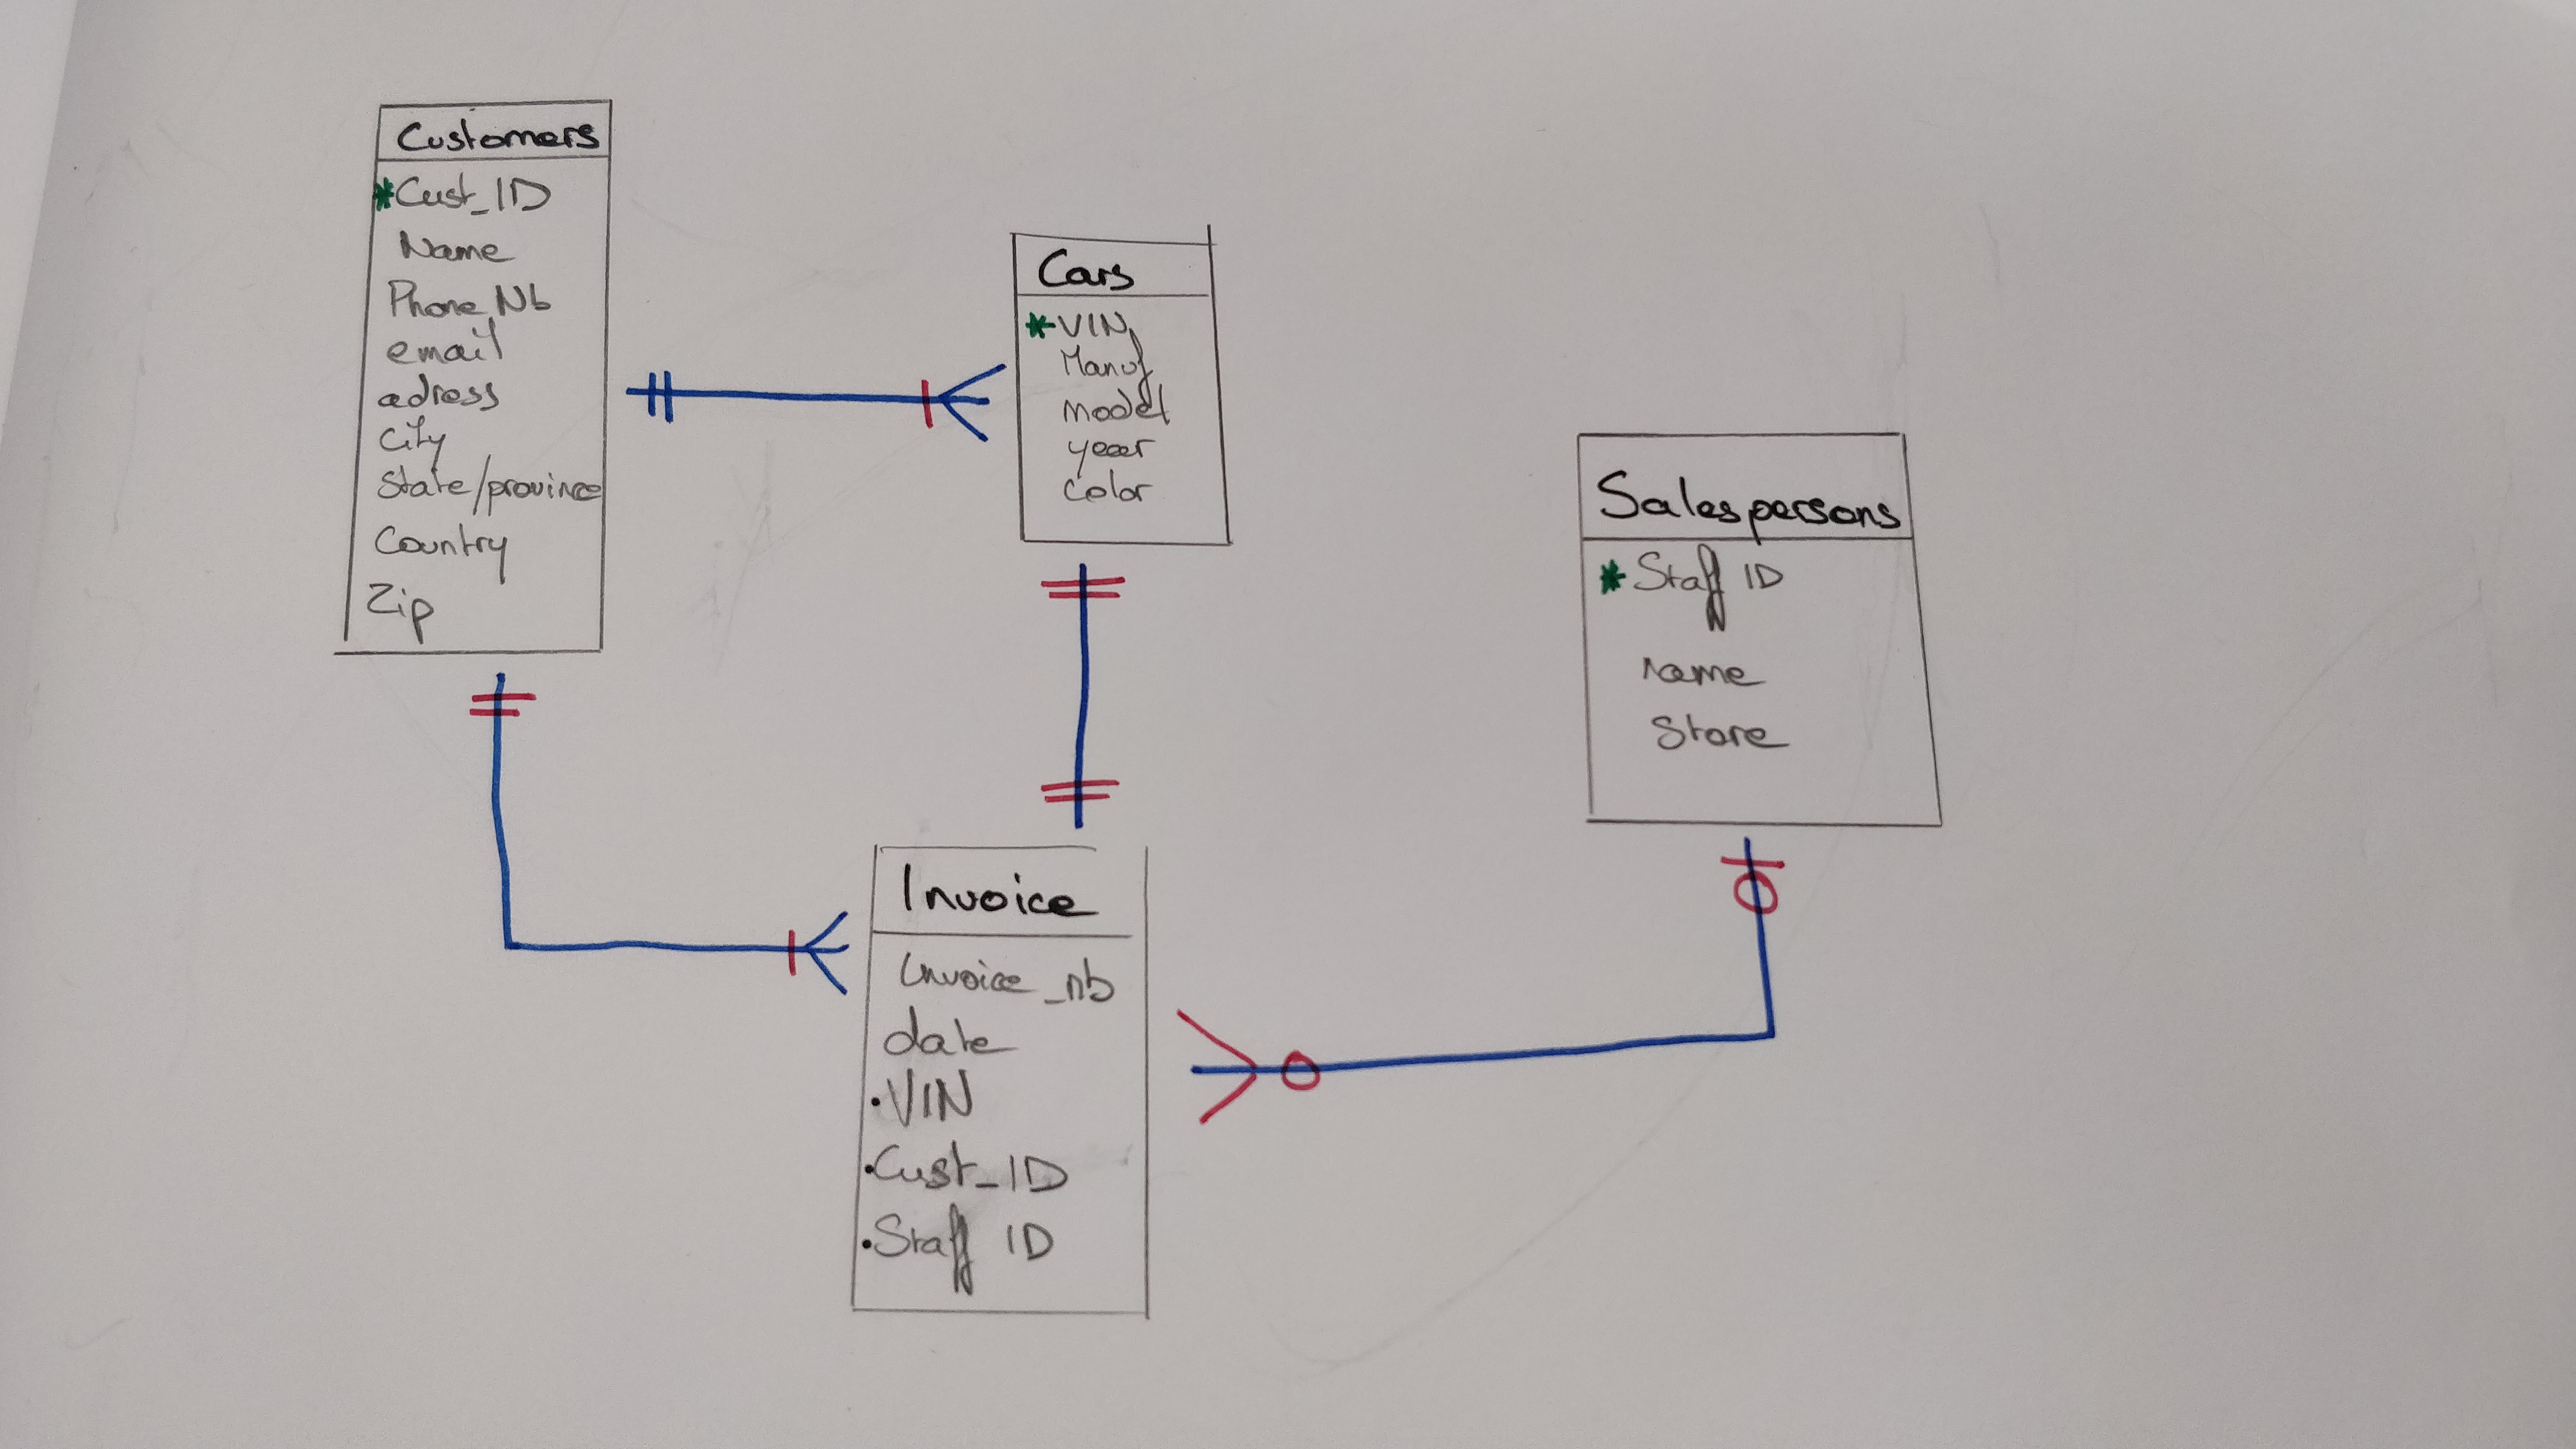 Customers
*Cust_ID
Name
Phone Nb
email
adress
City
State/province
Country
Zip
Cars
*VIN
Manuf
model
year
color
Salespersons
*Staff ID
name
Store
Invoice
Invoice_nb
date
•VIN
•Cust_ID
•Staff ID